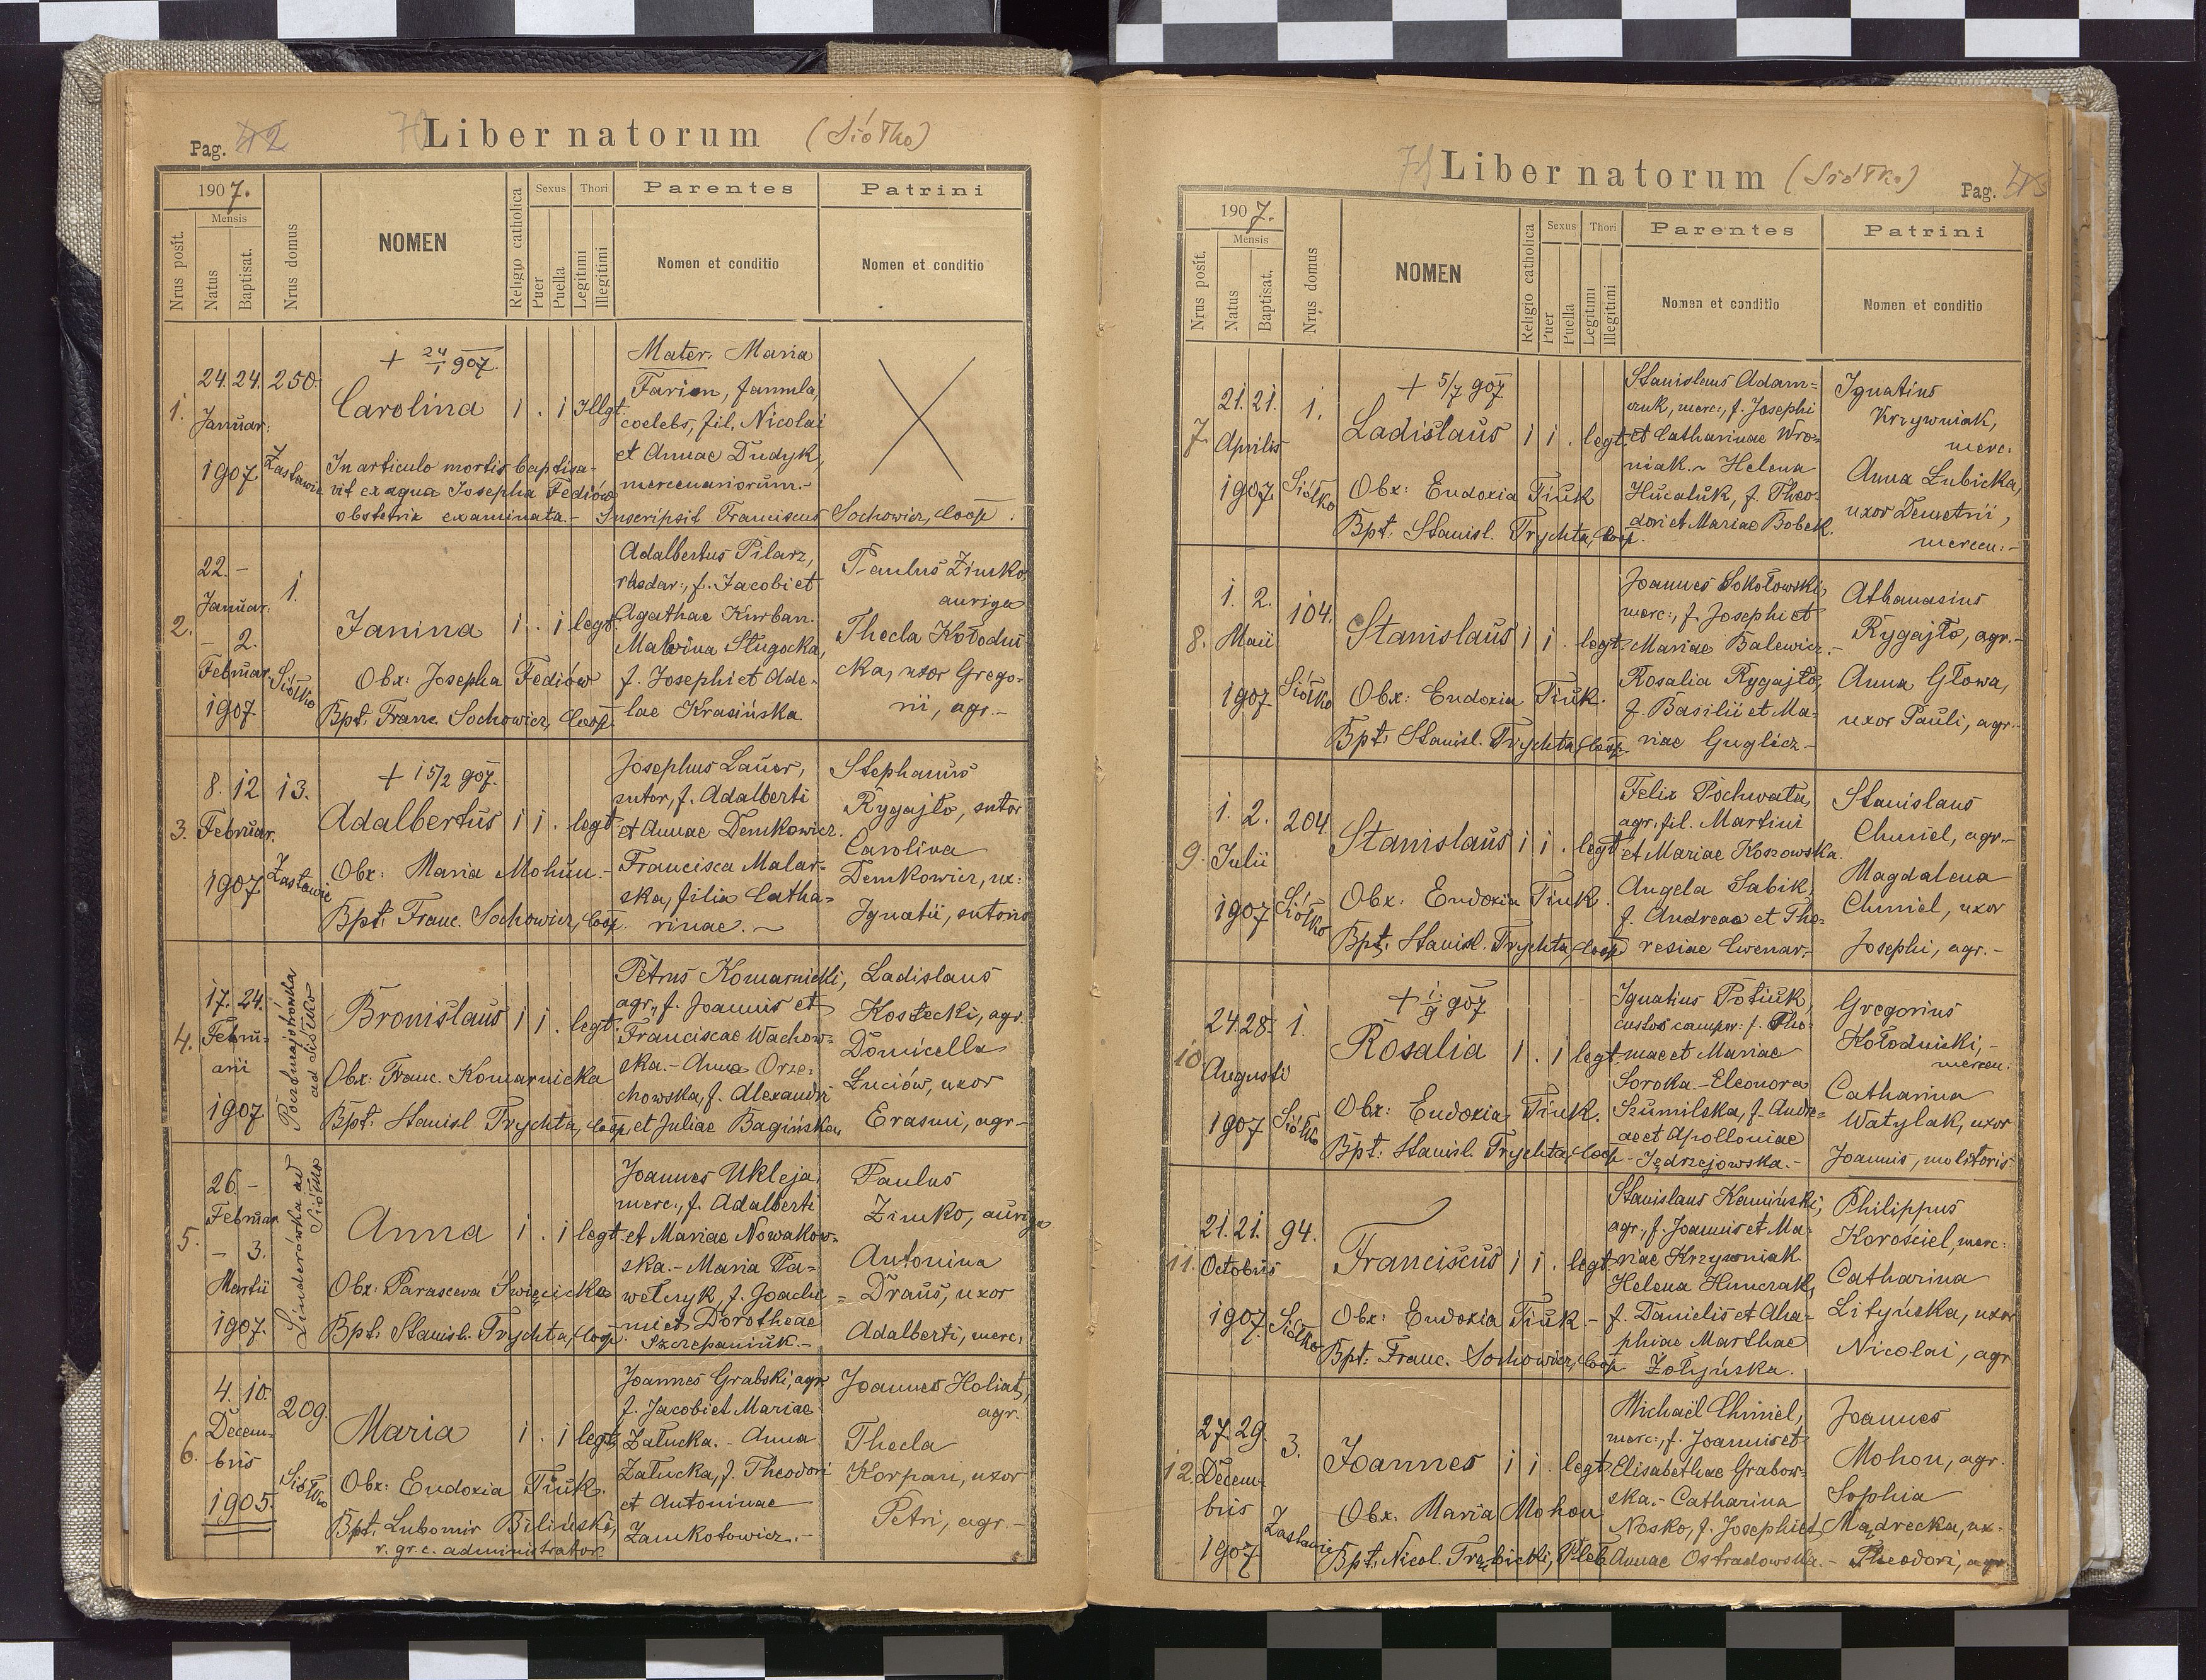 Pag. 42
Liber natorum (Siółko)
1907.
Nrus posit.
Mensis
Natus
Baptisat.
Nrus domus
NOMEN
Religio catholica
Sexus
Puer
Puella
Thori
Legitimi
Illegitimi
Parentes
Nomen et conditio
Patrini
Nomen et conditio
1.
24. 24. 250.
Januar.
1907. Zastawie
+ 24/1 907.
Carolina 1 . 1 Illgt.
In articulo mortis baptisa-
vit ex aqua Josepha Fediów
obstetrix examinata.- Inscripsit Franciscus Sochowicz, Coop.
Mater: Maria
Farion, famula,
coelebs, fil. Nicolai
et Annae Dudyk,
mercenariorum.-
2.
22. -
Januar.
- 2.
Februar.
1907
1.
Siółko
Janina 1 . 1 legt.
Obx: Josepha Fediów
Bpt. Franc Sochowicz, Coop.
Adalbertus Pilarz,
f. Jacobi et
Agathae Kurban.
Malvina Sługocka,
f. Josephi et Ade-
lae Krasińska
Paulus Zimko,
auriga
Thecla Kołodni-
cka, uxor Grego-
rii, agr.-
3.
8. 12. 13.
Februar.
1907. Zastawie
+ 15/2 907.
Adalbertus 1 1 . legt.
Obx: Maria Mohun.-
Bpt. Franc. Sochowicz, Coop.
Josephus Lauer,
sutor, f. Adalberti
et Annae Demkowicz.
Francisca Malar-
ska, filia Catha-
rinae.-
Stephanus
Rygajło, sutor
Carolina
Demkowicz, ux:
Ignatii, sutoris
4.
17. 24.
Febru-
arii
1907
Poczmajstrówka
ad Siółko
Bronislaus 1 1 . legt.
Obx: Franc. Komarnicka
Bpt. Stanisl. Trychta, Coop.
Petrus Komarnicki,
agr., f. Joannis et
Franciscae Wachow-
ska.- Anna Orze-
chowska, f. Alexandri
et Juliae Bagińska,
Ladislaus
Kostecki, agr.
Domicella
Łuciów, uxor
Erasmi, agr.-
5.
26. -
Februar.
- 3.
Martii
1907.
Linderówka ad
Siółko
Anna 1 . 1 legt.
Obx: Parasceva Święcicka
Bpt. Stanisl. Trychta, Coop.
Joannes Ukleja,
merc., f. Adalberti
et Mariae Nowakow-
ska.- Maria Pa-
wełczyk, f. Joachi-
mi et Dorotheae
Szczepaniuk.-
Paulus
Zimko, auriga
Antonina
Draus, uxor
Adalberti, merc.
6.
4. 10. 209.
Decem-
bris
1905.
Siółko
Maria 1 . 1 legt.
Obx: Eudoxia Tiuk.
Bpt. Lubomir Biliński,
r. gr. c. administrator.
Joannes Grabski, agr.
f. Jacobi et Mariae
Załucka.- Anna
Załucka, f. Theodori
et Antoninae
Zamkotowicz.-
Joannes Holiat,
agr.
Thecla
Korpan, uxor
Petri, agr.-
71 Liber natorum (Siółko)
Pag. 43
1907.
Nrus posit.
Mensis
Natus
Baptisat.
Nrus domus
NOMEN
Religio catholica
Sexus
Puer
Puella
Thori
Legitimi
Illegitimi
Parentes
Nomen et conditio
Patrini
Nomen et conditio
7.
21. 21. 1.
Aprilis
1907. Siółko
+ 5/7 907
Ladislaus 1 1 . legt.
Obx: Eudoxia Tiuk
Bpt: Stanisl. Trychta, Coop.
Stanislaus Adam-
czuk, merc., f. Josephi
et Catharinae Wro-
niak.- Helena
Hucaluk, f. Theo-
dori et Mariae Bobek.
Ignatius
Krzywniak,
merc.
Anna Łubicka,
uxor Demetrii,
mercen.-
8.
1. 2. 104.
Maii
1907 Siółko
Stanislaus 1 1 . legt.
Obx: Eudoxia Tiuk.
Bpt. Stanisl. Trychta, Coop.
Joannes Sokołowski,
merc., f. Josephi et
Mariae Balewicz.-
Rosalia Rygajło,
f. Basilii et Ma-
riae Guglicz-
Athanasius
Rygajło, agr.-
Anna Głowa,
uxor Pauli, agr.-
9.
1. 2. 204.
Julii
1907 Siółko
Stanislaus 1 1 . legt.
Obx: Eudoxia Tiuk.
Bpt. Stanisl. Trychta, Coop.
Felix Pochwata,
agr., fil. Martini
et Mariae Koszowska.
Angela Sabik,
f. Andreae et The-
resiae Cwenar.-
Stanislaus
Chmiel, agr.-
Magdalena
Chmiel, uxor
Josephi, agr.-
10.
24. 28. 1.
Augusti
1907 Siółko
+ 1/9 907
Rosalia 1 . 1 legt.
Obx: Eudoxia Tiuk.
Bpt: Stanisl. Trychta, Coop.
Ignatius Potiuk,
custos campor: f. Tho-
mae et Mariae
Soroka-Eleonora
Szumilska, f. Andre-
ae et Apolloniae
- Jędrzejowska.-
Gregorius
Kołodnicki,-
mercen.
Catharina
Watylak, uxor
Joannis, molitoris.
11.
21. 21. 94.
Octobris
1907. Siółko
Franciscus 1 1 . legt.
Obx: Eudoxia Tiuk.-
Bpt: Franc. Sochowicz, Coop.
Stanislaus Kamiński,
agr., f. Joannis et Ma-
riae Krzywniak.
Helena Humczak,
f. Danielis et Aha-
phiae Marthae
Żołyńska.
Philippus
Korościel, merc:
Catharina
Lityńska, uxor
Nicolai, agr.
12.
27. 29. 3.
Decem-
bris
1907
Zastawie
Joannes 1 1 . legt.
Obx. Maria Mohon
Bpt. Nicol. Trębicki, Pleb.
Michaël Chmiel,
merc., f. Joannis et
Elisabethae Grabow-
ska.- Catharina
Nosko, f. Josephi et
Annae Ostradowska.-
Joannes
Mohon, agr.
Sophia
Mądrecka, ux.
Theodori, agr.